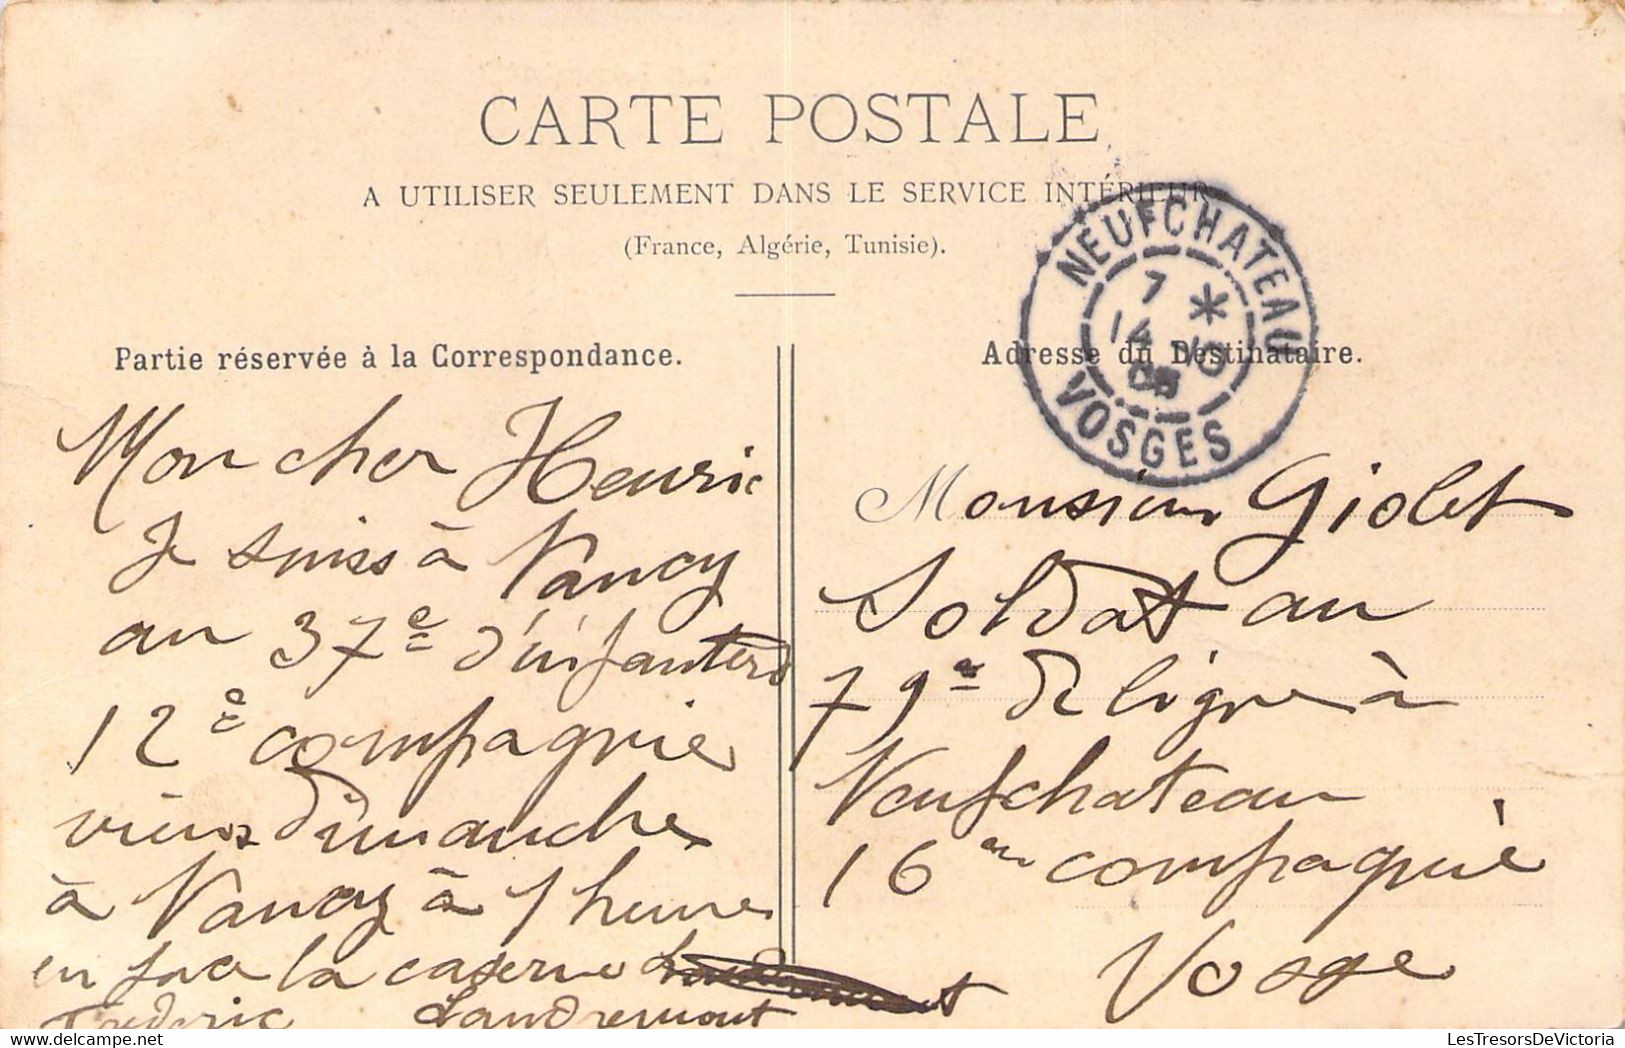 CARTE POSTALE
A UTILISER SEULEMENT DANS LE SERVICE INTÉRIEUR
(France, Algérie, Tunisie).
NEUFCHATEAU
7 *
14
05
VOSGES
Partie réservée à la Correspondance.
Mon cher Henric
Je suiss à Nancy
au 37e d'infanterd
12e compagnie
viens dimanche
à Nancy à 1 heure
en face la caserne
Frederic Landremont
Adresse du Destinataire.
Monsieur Giolet
Soldat au
79e de ligne à
Neufchateau
16em compagnie
Vosge
LesTresorsDeVictoria